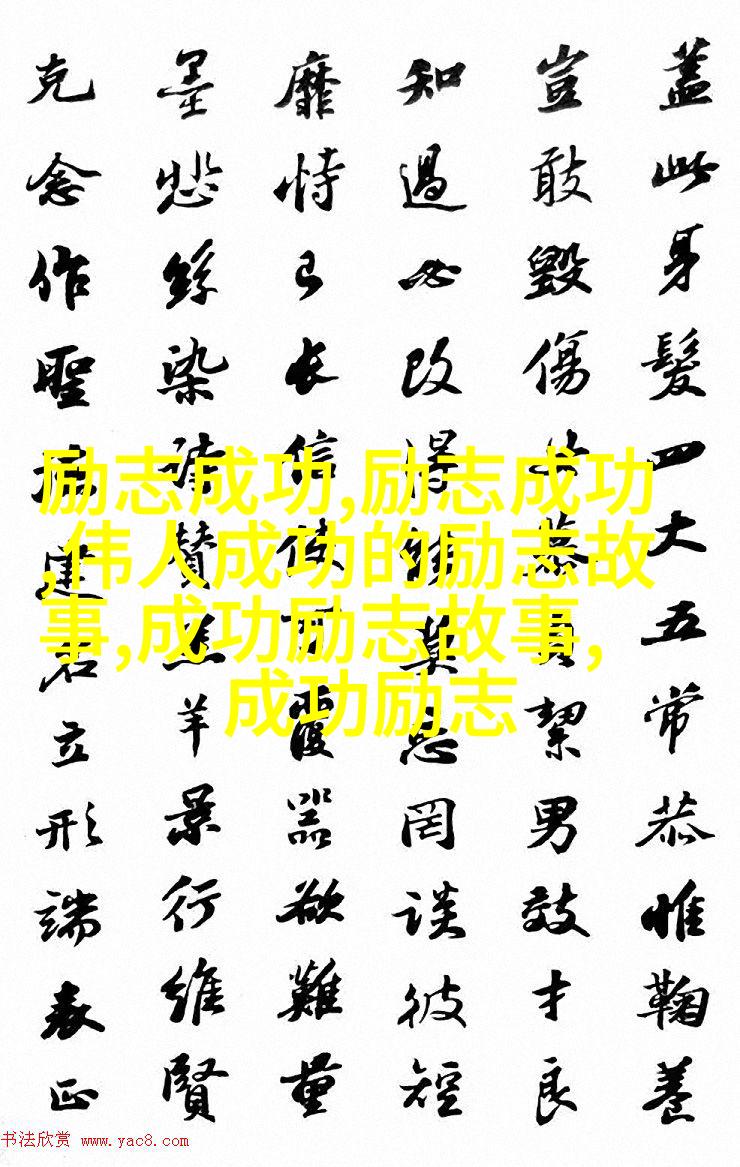 蓋此身髮四大五常恭惟鞠養
豈敢毀傷女慕貞絜男效才良
知過必改得能莫忘罔談彼短
靡恃己長信使可覆器欲難量
墨悲絲染詩贊羔羊景行維賢
克念作聖德建名立形端表正
励志成功,励志成功
,伟人成功的励志故
事,成功励志故事,
成功励志
书法欣赏 www.yac8.com